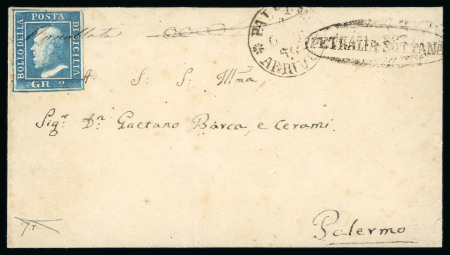 POSTA
BOLLO DELLA
DI SICILIA
GR 2
Annullato
PALERMO
ARRIVO
PETRALIA SOTTANA
A. S. S. Illma
Sigr Dn Gaetano Barca e Cerami
Palermo